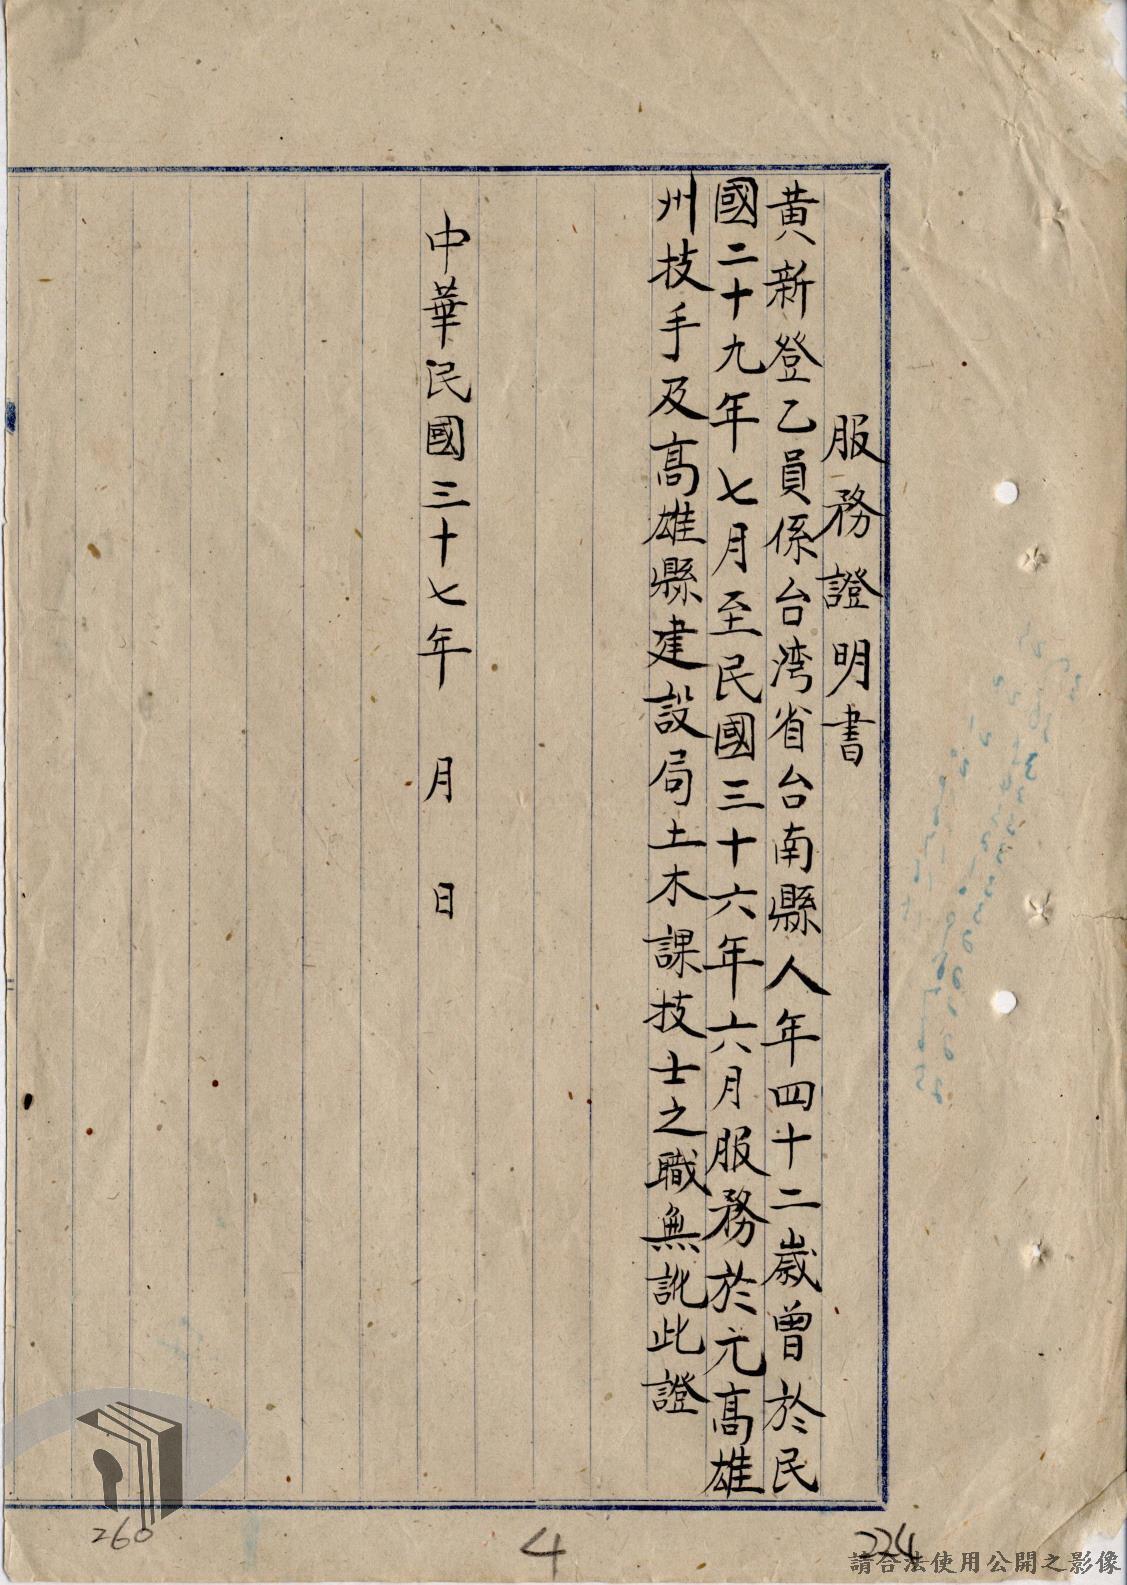 服務證明書
黃新登乙員係台湾省台南縣人年四十二歲曾於民
國二十九年七月至民國三十六年六月服務於元高雄
州技手及高雄縣建設局土木課技士之職無訛此證
中華民國三十七年　月　日
260
4
224
請合法使用公開之影像